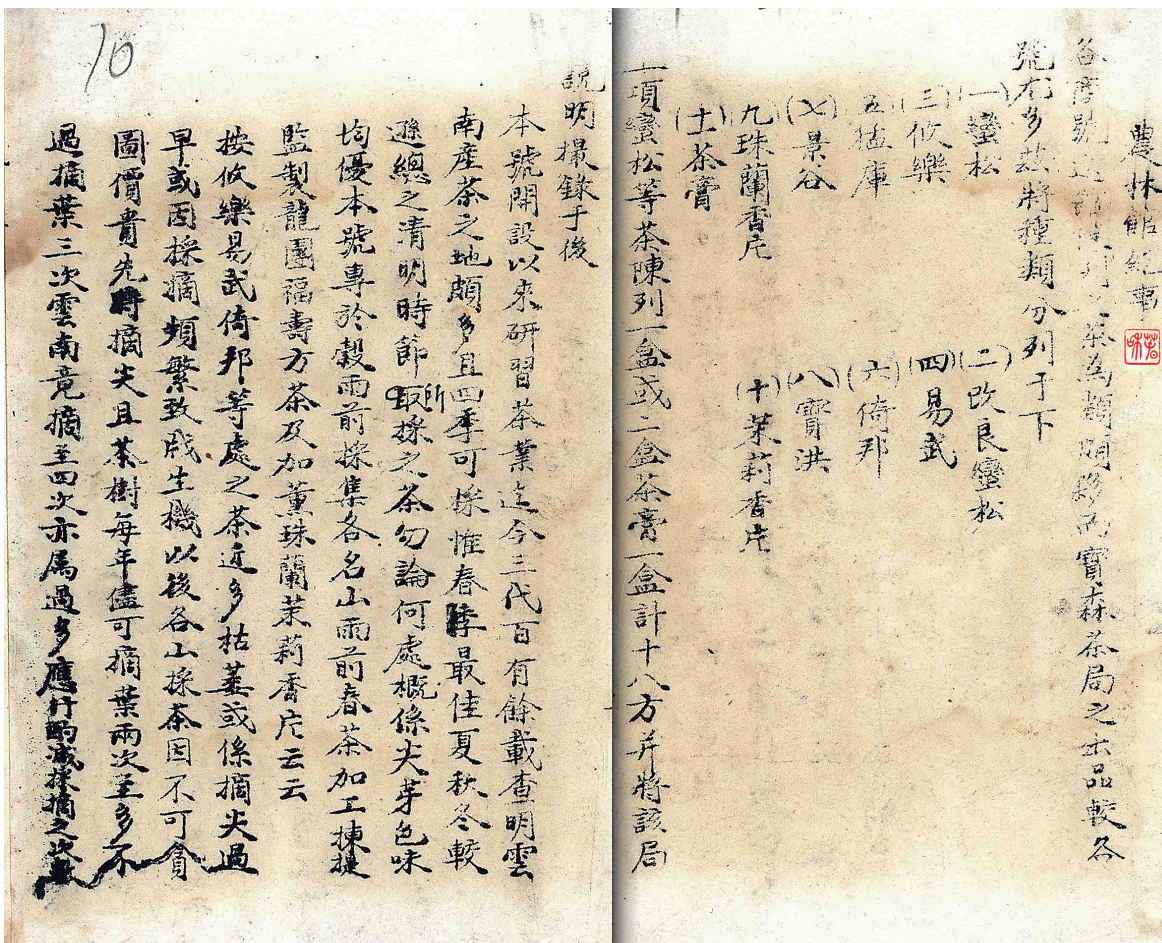 農林館紀事
各商號 列之茶為類頗夥而寶森茶局之出品較各
號尤多茲將種類分列于下
(一)蠻松 (二)改良蠻松
(三)攸樂 (四)易武
五猛庫 (六)倚邦
(七)景谷 (八)寶洪
九珠蘭香片 (十)茉莉香片
(十一)茶膏
上項蠻松等茶陳列一盒或二盒茶膏一盒計十八方并將該局
說明撮錄于後
本號開設以來研習茶業迄今三代百有餘載查明雲
南產茶之地頗多且四季可採惟春季最佳夏秋冬較
遜總之清明時節所取採之茶勿論何處概係尖芽色味
均優本號專於穀雨前採集各名山雨前春茶加工揀提
監製龍團福壽方茶及加薰珠蘭茉莉香片云云
按攸樂易武倚邦等處之茶近多枯萎或係摘尖過
早或因採摘頻繁致戕生機以後各山採茶因不可貪
圖價貴先時摘尖且茶樹每年儘可摘葉兩次至多不
過摘葉三次雲南竟摘至四次亦屬過多應行酌減採摘之次數
16